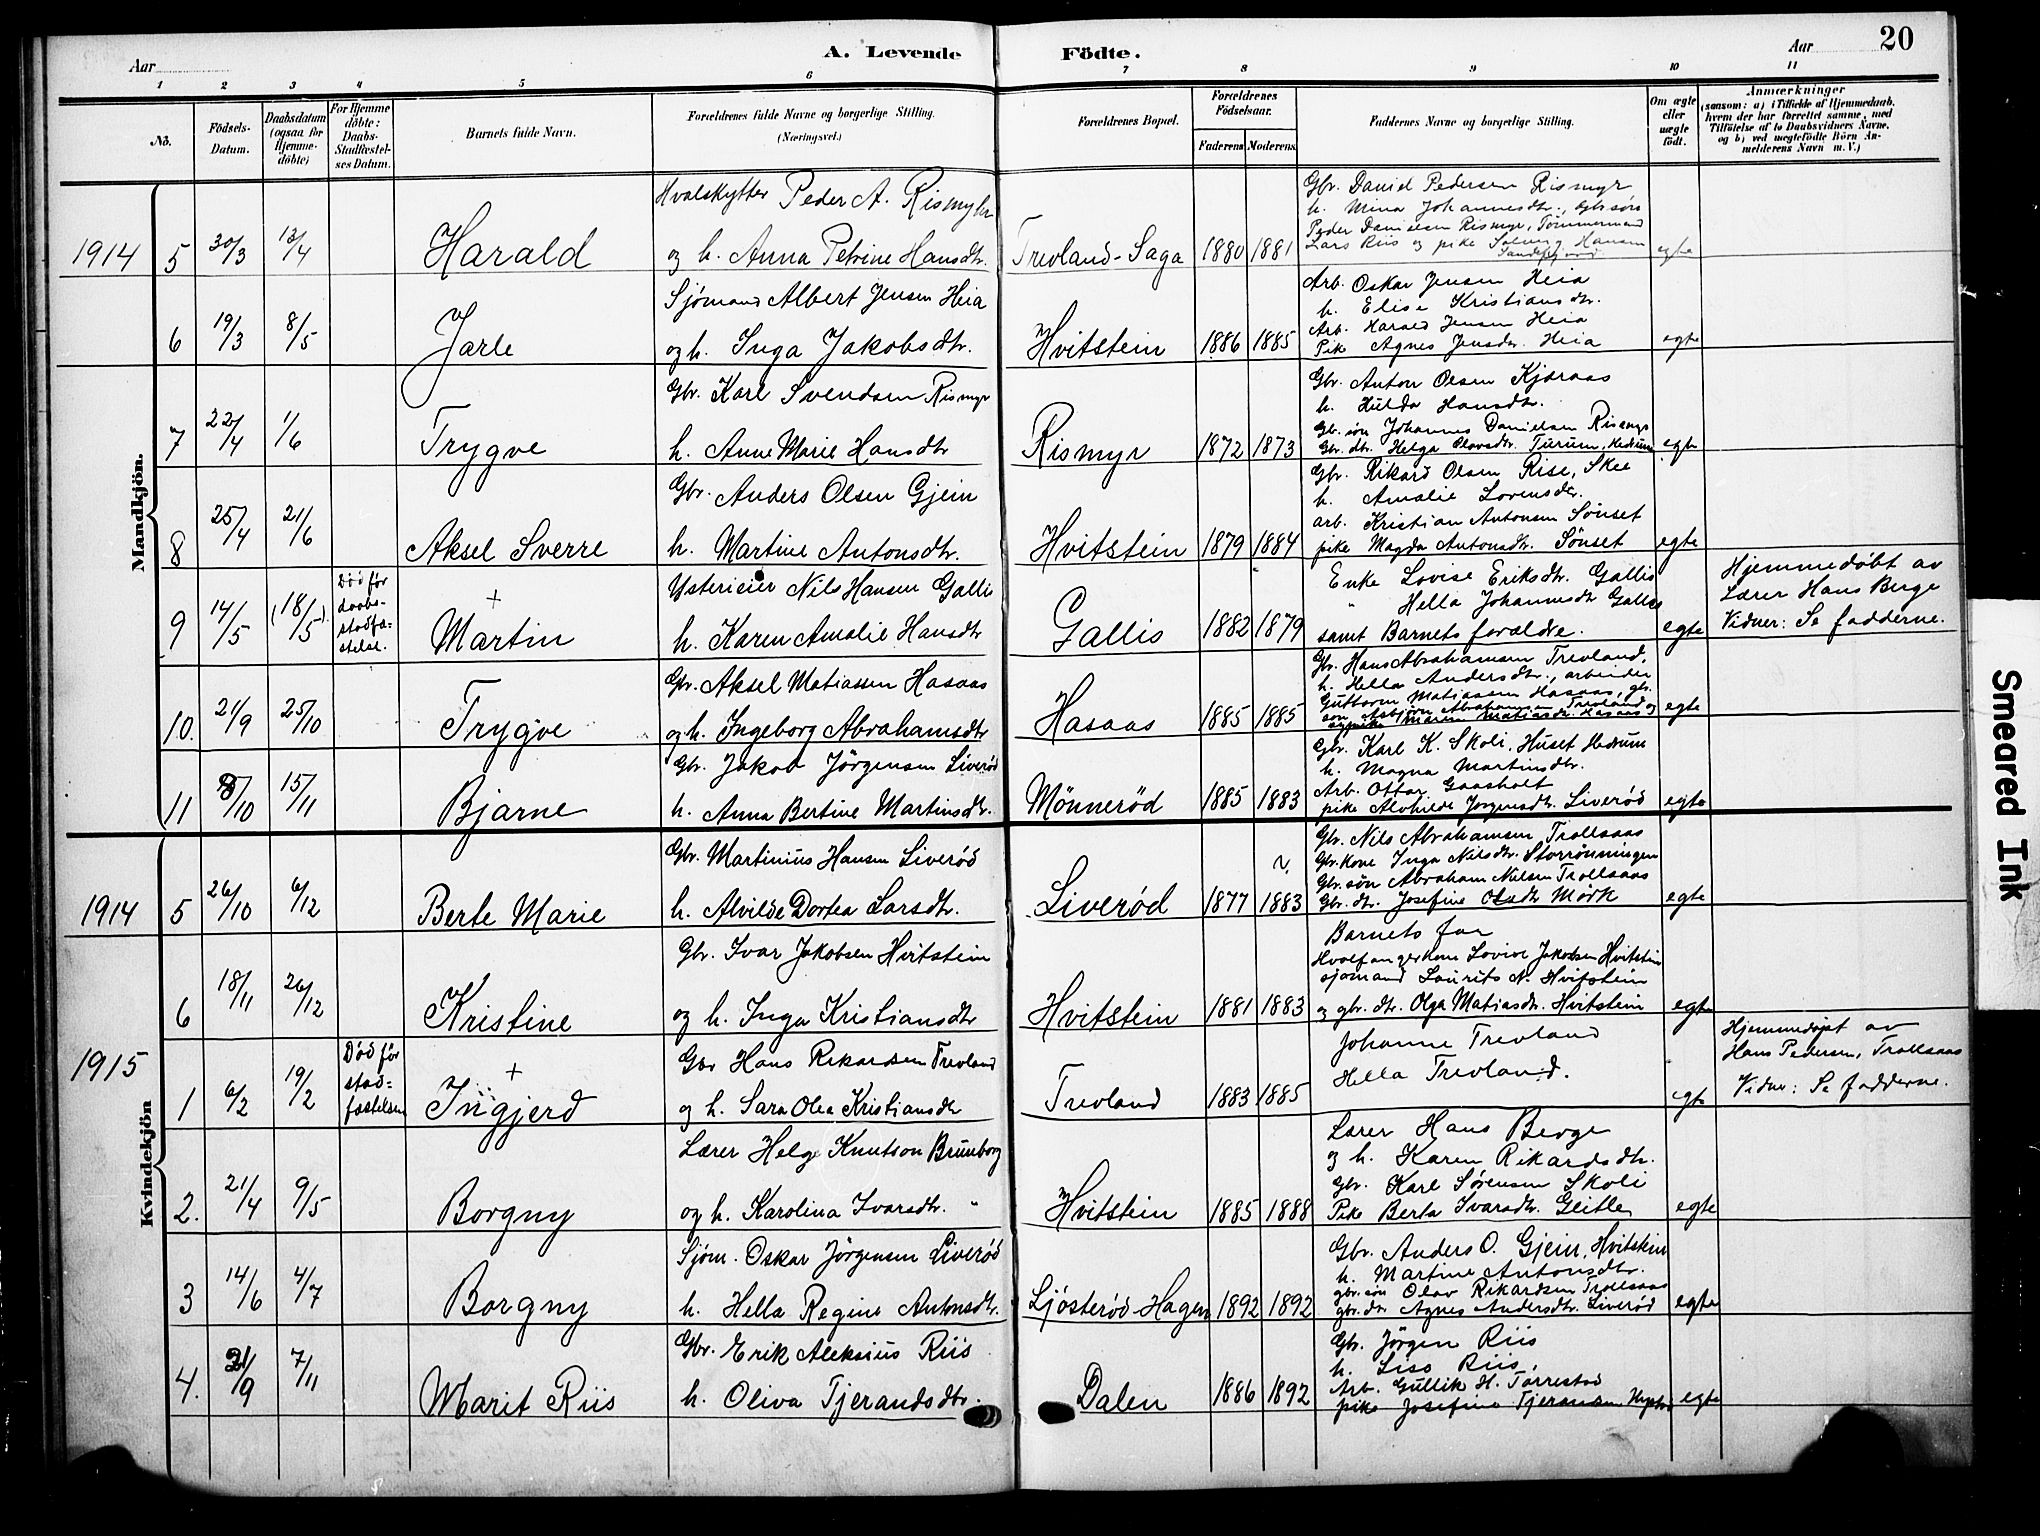 Aar
A. Levende Födte.
Aar
20
1 2 3 4 5 6 7 8 9 10 11
No.
Födsels-Datum.
Daabsdatum (ogsaa for Hjemmedöbte)
For Hjemmedöbte: Daabs-Stadfæstelses Datum.
Barnets fulde Navn.
Forældrenes fulde Navne og borgerlige Stilling. (Næringsvei.)
Forældrenes Bopæl.
Forældrenes Födselsaar.
Faderens Moderens
Faddernes Navne og borgerlige Stilling.
Om ægte eller uægte födt.
Anmærkninger
(saasom: a) i Tilfælde af Hjemmedaab,
hvem der har forrettet samme, med
Tilföielse af to Daabsvidners Navne,
og b) ved uægtefödte Börn An-
melderens Navn m. V.)
Mandkjön.
1914 5 30/3 13/4 Harald
Hvalskytter Peder A. Rismyhr
og h. Anna Petrine Hansdtr.
Trevland-Saga 1880 1881
Gbr. Daniel Pedersen Rismyr
h. Mina Johannesdtr., gbrsøn
Peder Danielsen Rismyr, Tømmermand
Lars Riis og pike Solveig Hansen
Sandefjord
egte
6 19/3 8/5 Jarle
Sjømand Albert Jensen Heia
og h. Inga Jakobsdtr.
Hvitstein 1886 1885
Arb. Oskar Jensen Heia
h. Elise Kristiansdtr.
Arb. Harald Jensen Heia
Pike Agnes Jensdr. Heia
egte
7 22/4 1/6 Trygve
Gbr. Karl Svendsen Rismyr
h. Anne Marie Hansdtr
Rismyr 1872 1873
Gbr. Anton Olsen Kjæraas
h. Hulda Hansdtr.
Gb. søn Johannes Danielsen Rismyr
Gbr. dtr. Helga Olavsdtr. Furum, Hedrum
egte
8 25/4 21/6 Aksel Sverre
Gbr. Anders Olsen Gjein
h. Martine Antonsdtr.
Hvitstein 1879 1884
Gbr. Rikard Olsen Rise, Skee
h. Amalie Lorensdtr.
arb. Kristian Antonsen Sönset
pike Magda Antonsdtr. Sönset
egte
9 14/5 (18/5)
Död før
daabs-
stadfæ-
stelse.
+
Martin
Ystericier Nils Hansen Gallis
h. Karen Amalie Hansdtr
Gallis 1882 1879
Enke Lovise Eriksdtr. Gallis
" Hella Johannesdtr Gallis
samt Barnets forældre.
egte
Hjemmedøbt av
Lærer Hans Berge
Vidner: Se fadderne.
10. 21/9 25/10 Trygve
Gbr. Aksel Matiassen Hasaas
og h. Ingeborg Abrahamsdtr
Hasaas 1885 1885
Gbr. Hans Abrahamsen Trevland,
h. Hella Andersdtr., arbeider
Guttorm Matiassen Hasaas, gbr.
søn Asbjørn Abrahamsen Trevland og
Maren Matiasdtr. Hasaas
egte
11 8/10 15/11 Bjarne
Gbr. Jakob Jörgensen Liverød
h. Anna Bertine Martinsdtr.
Mönnerød 1885 1883
Gbr. Karl K. Skoli, Huset Hedrum
h. Magna Martinsdtr.
Arb. Ottar Gaasholt
pike Alvhilde Jörgensdtr. Liverød
egte
Kvindekjön
1914 5 26/10 6/12 Berte Marie
Gbr. Martinius Hansen Liverød
h. Alvilde Dortea Larsdtr.
Liverød 1877 1883
Gbr. Nils Abrahamsen Trollsaas
Gbr. Kone Inga Nilsdtr. Storrønningen
Gbr. søn Abraham Nielsen Trollsaas
Gbr. dtr. Josefine Olsdtr Mörk
egte
6 18/11 26/12 Kristine
Gbr. Ivar Jakobsen Hvitstein
og h. Inga Kristiansdtr
Hvitstein 1881 1883
Barnets far
Hvalfangerkone Lovise Jakobsen Hvitstein
sjømand Laurits N. Hvitstein
og gbr. dtr. Olga Matiasdtr. Hvitstein
egte
1915 1 6/2 19/2
Död før
stad=
fæstelsen
+
Ingjerd
Gbr Hans Rikardsen Trevland
og h. Sara Olea Kristiansdtr
Trevland 1883 1885
Johanne Trevland
Hella Trevland.
egte
Hjemmedøpt av
Hans Pedersen, Trollsaas
Vidner: Se fadderne.
2. 21/4 9/5 Borgny
Lærer Helge Knutson Brunborg
og h. Karolina Ivarsdtr. "
Hvitstein 1885 1888
Lærer Hans Berge
og h. Karen Rikardsdtr.
Gbr. Karl Sørensen Skoli
Pike Berta Ivarsdtr. Geitle
egte
3 14/6 4/7 Borgny
Sjøm. Oskar Jörgensen Liverød
h. Hella Regine Antonsdtr.
Ljösterød-Hagen 1892 1892
Gbr. Anders O. Gjein, Hvitstein
h. Martine Antonsdtr.
gbr. søn Olav Rikardsen Trollsaas
gbr. dtr Agnes Andersdtr. Liverød
egte
4. 21/9 7/11 Marit Riis
Gbr. Erik Aleksius Riis
h. Oliva Tjerandsdtr.
Dalen 1886 1892
Gbr. Jörgen Riis
h. Lisa Riis,
Arb. Gullik H. Torrestad
pike Josefine Tjeransen
egte
Smeared Ink